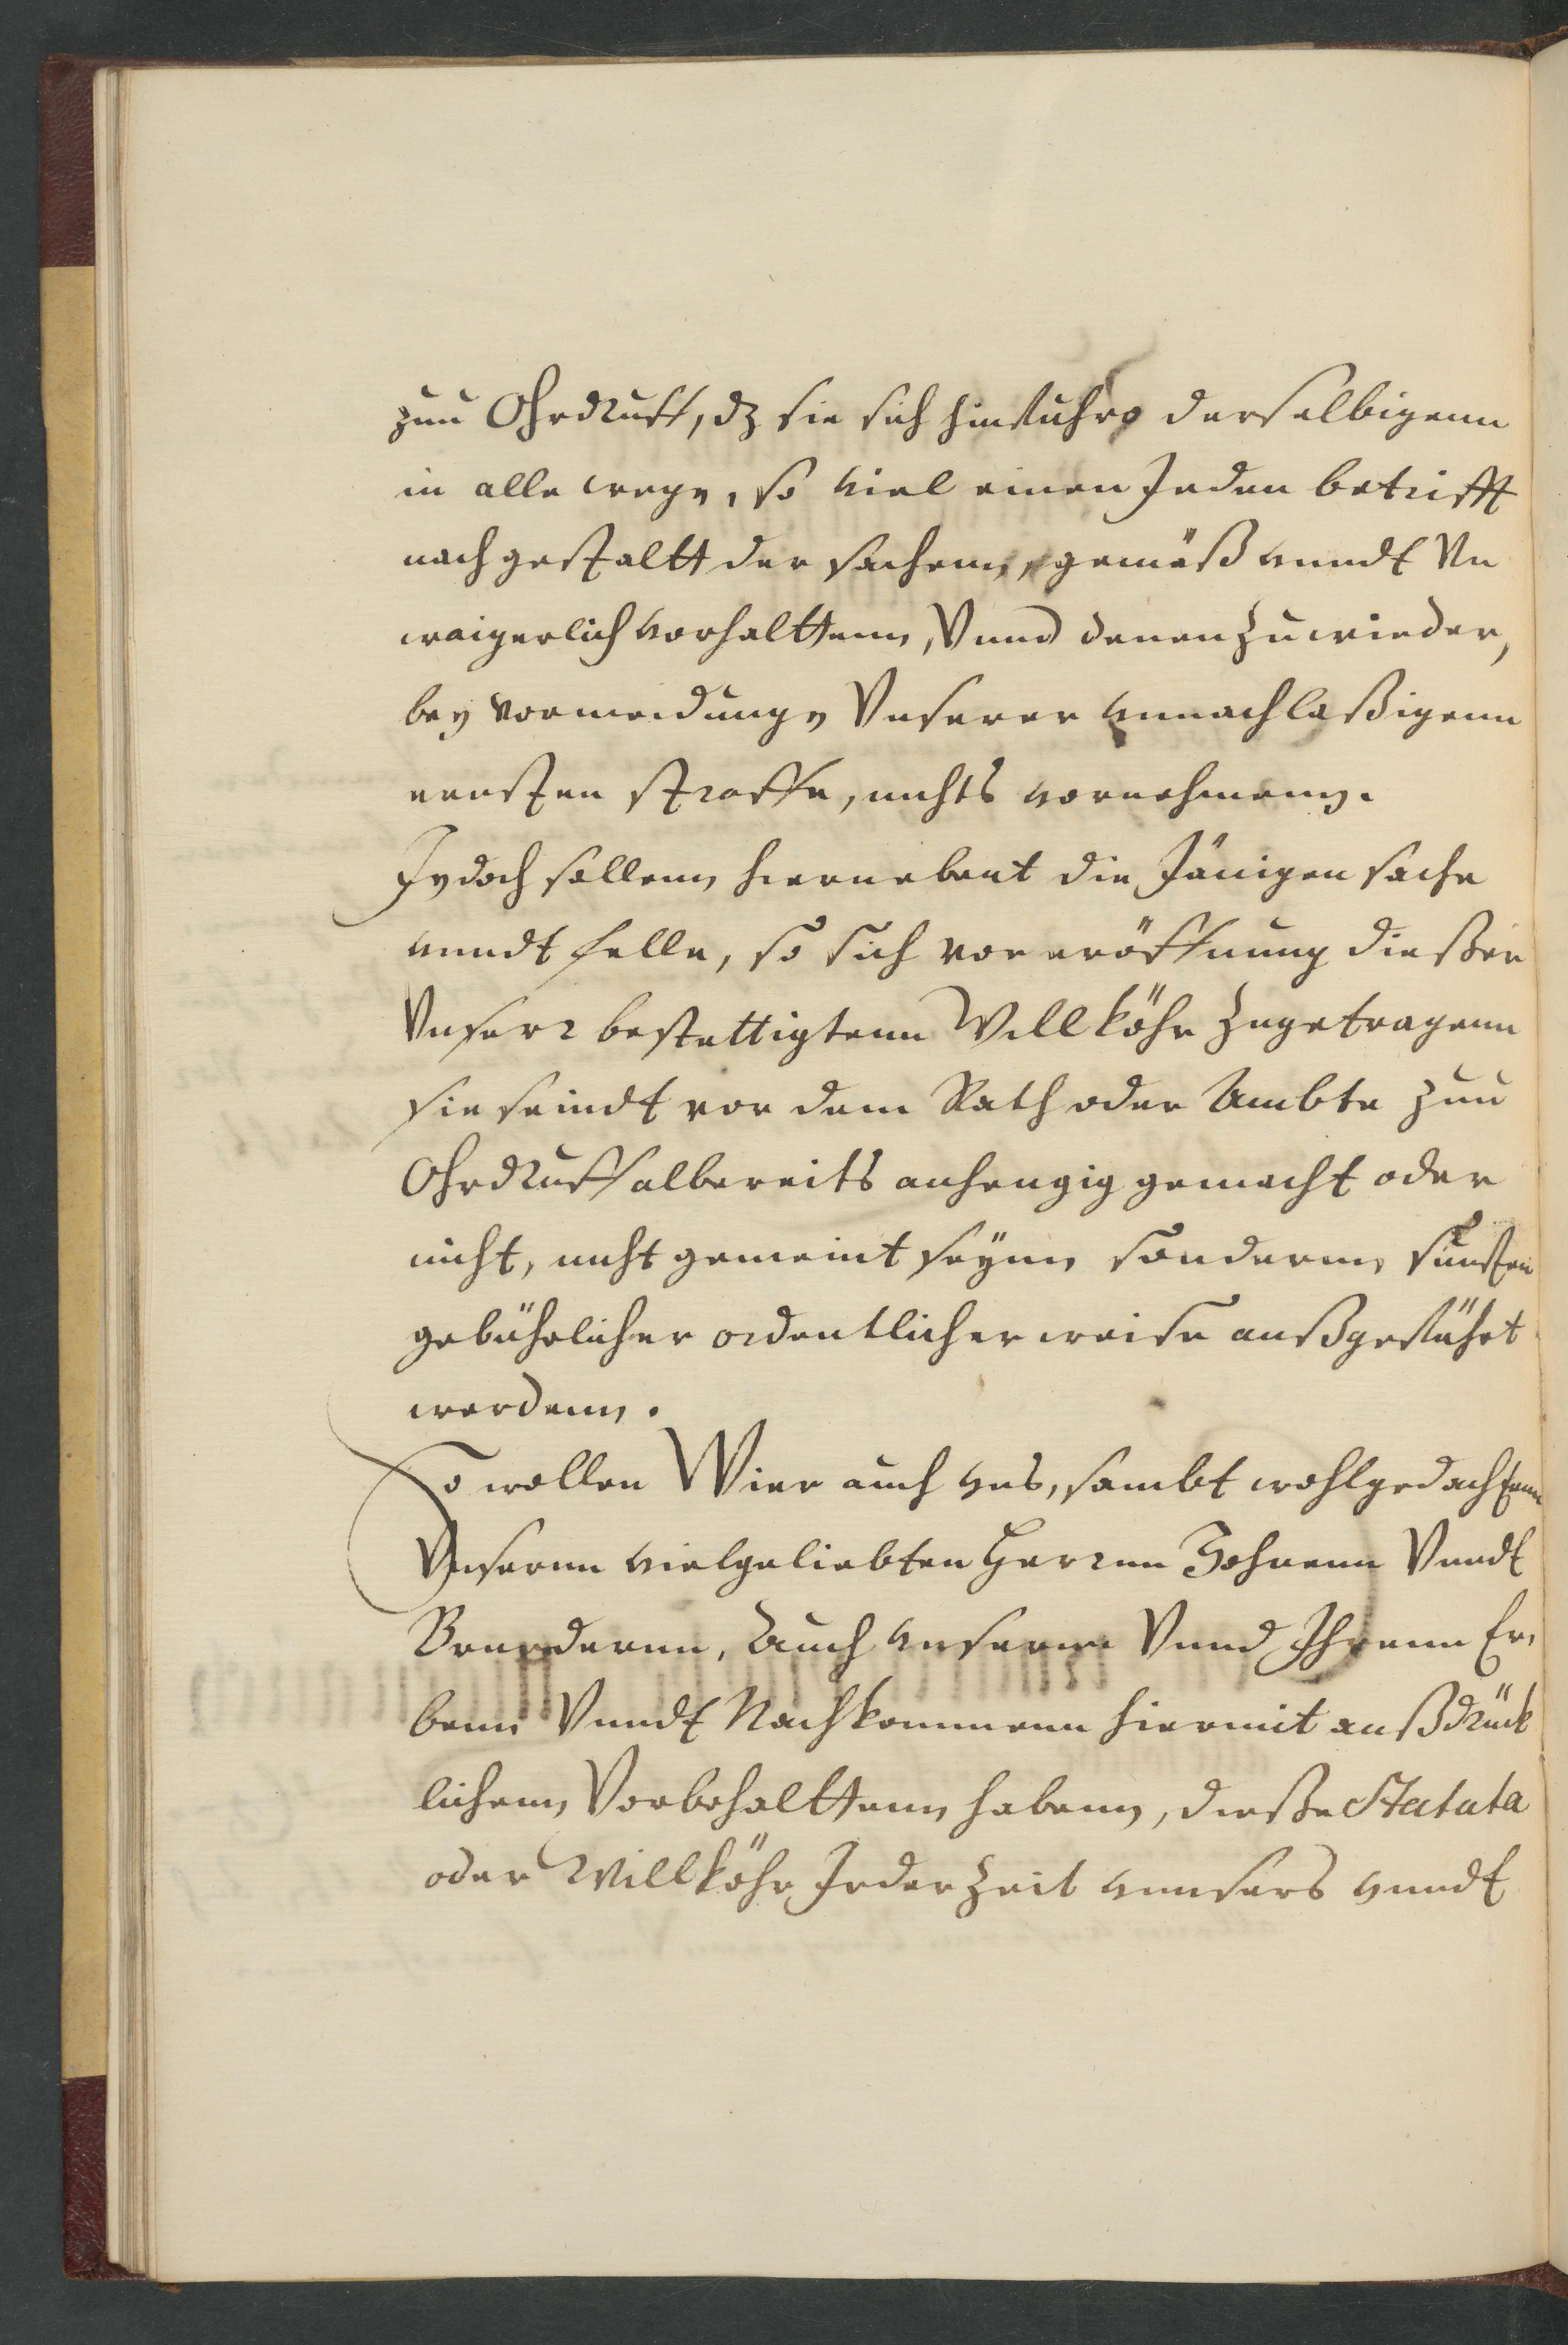 zuu Ohrdruff, dz sie sich hinfuhro derselbigenn
in alle wege, so viel einen Jeden betrifft
nach gestaltt der sachenn, gemäß vnndt Vn
waigerlich vorhalttenn, Vnnd denen zuwieder,
bey vormeidunge Vnserer vnnachlaßigenn
ernsten straffe, nichts vornehmenn.
Jedoch sollenn hiernebent die Jänigen sache
vnndt felle, so sich vor eröffnung dießer
Vnserr bestettigtenn Willköhr zugetragenn
sie seindt vor dem Rath oder Ambte zuu
Ohrdruff albereits anhengig gemacht oder
nicht, nicht gemeint seynn sondernn sunsten
gebührlicher ordentlicher weise außgeführt
werdenn.
So wollen Wier auch vns, sambt wohlgedachtenn
Vnsernn vielgeliebten Herrnn Sohnenn Vnndt
Bruedernn, Auch vnsernn Vnnd Ihrenn Er,
benn Vnndt Nachkommenn hiermit außdrück
lichenn Vorbehalttenn habenn, dieße Statuta
oder Willköhr Jederzeit vnnsers vnndt